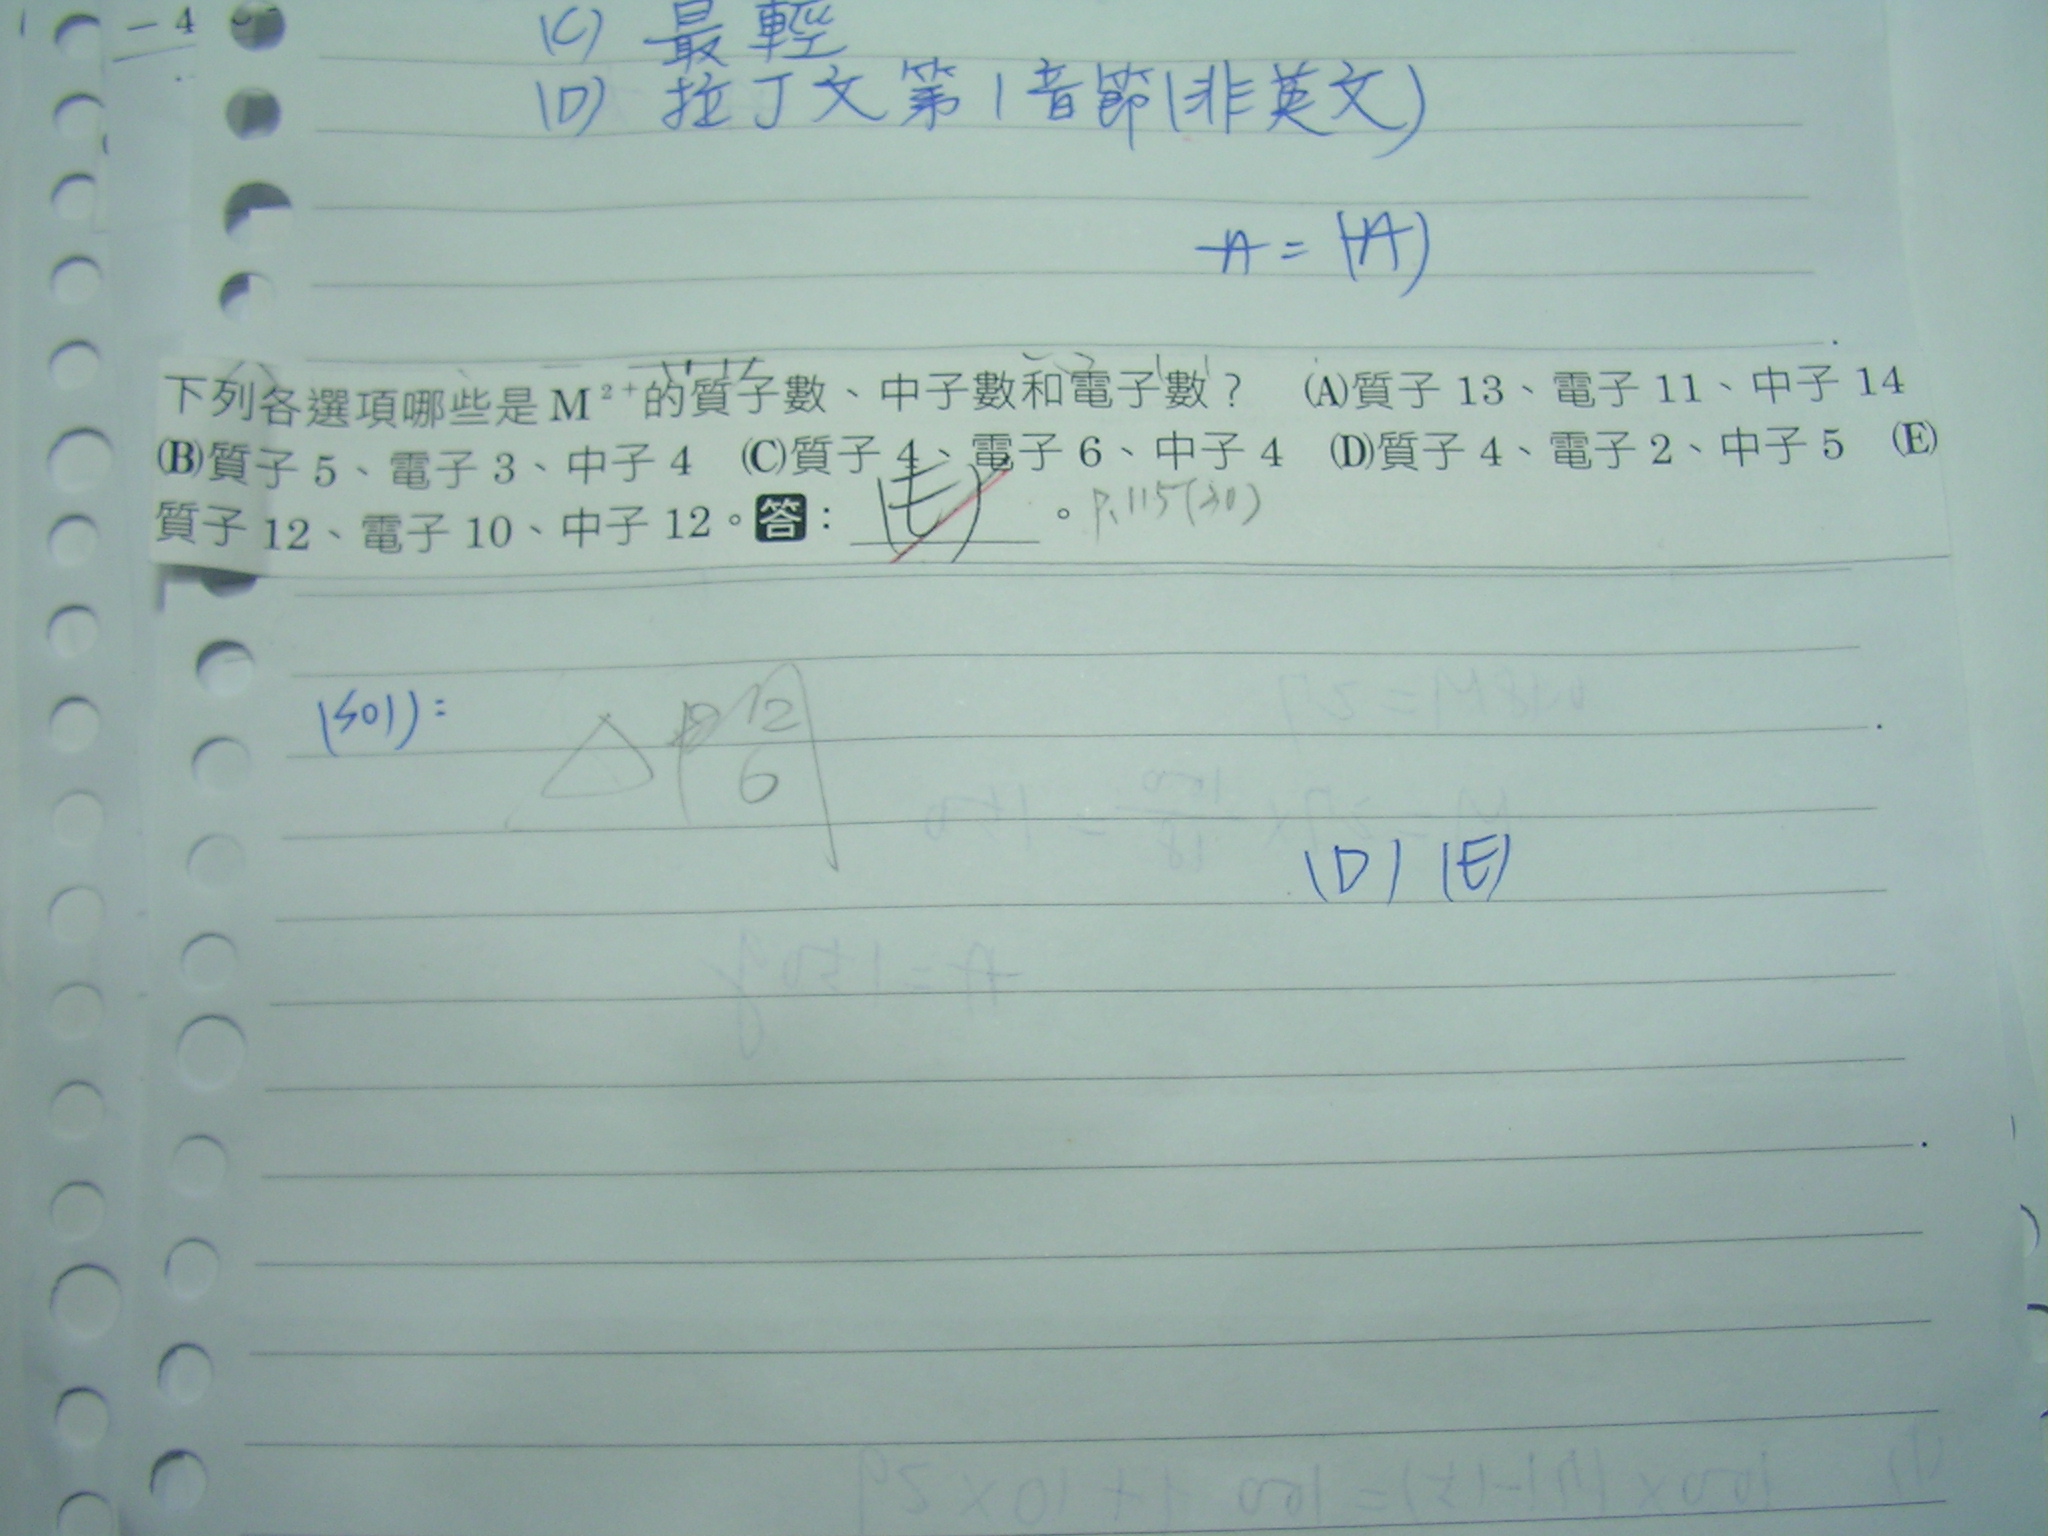 －4
(C) 最輕
(D) 拉丁文第1音節(非英文)
A = (A)
下列各選項哪些是M²⁺的質子數、中子數和電子數？ (A)質子 13、電子 11、中子 14
(B)質子 5、電子 3、中子 4 (C)質子 4、電子 6、中子 4 (D)質子 4、電子 2、中子 5 (E)
質子 12、電子 10、中子 12。答：(E)。P.115(30)
(sol):
12
6
(D) (E)